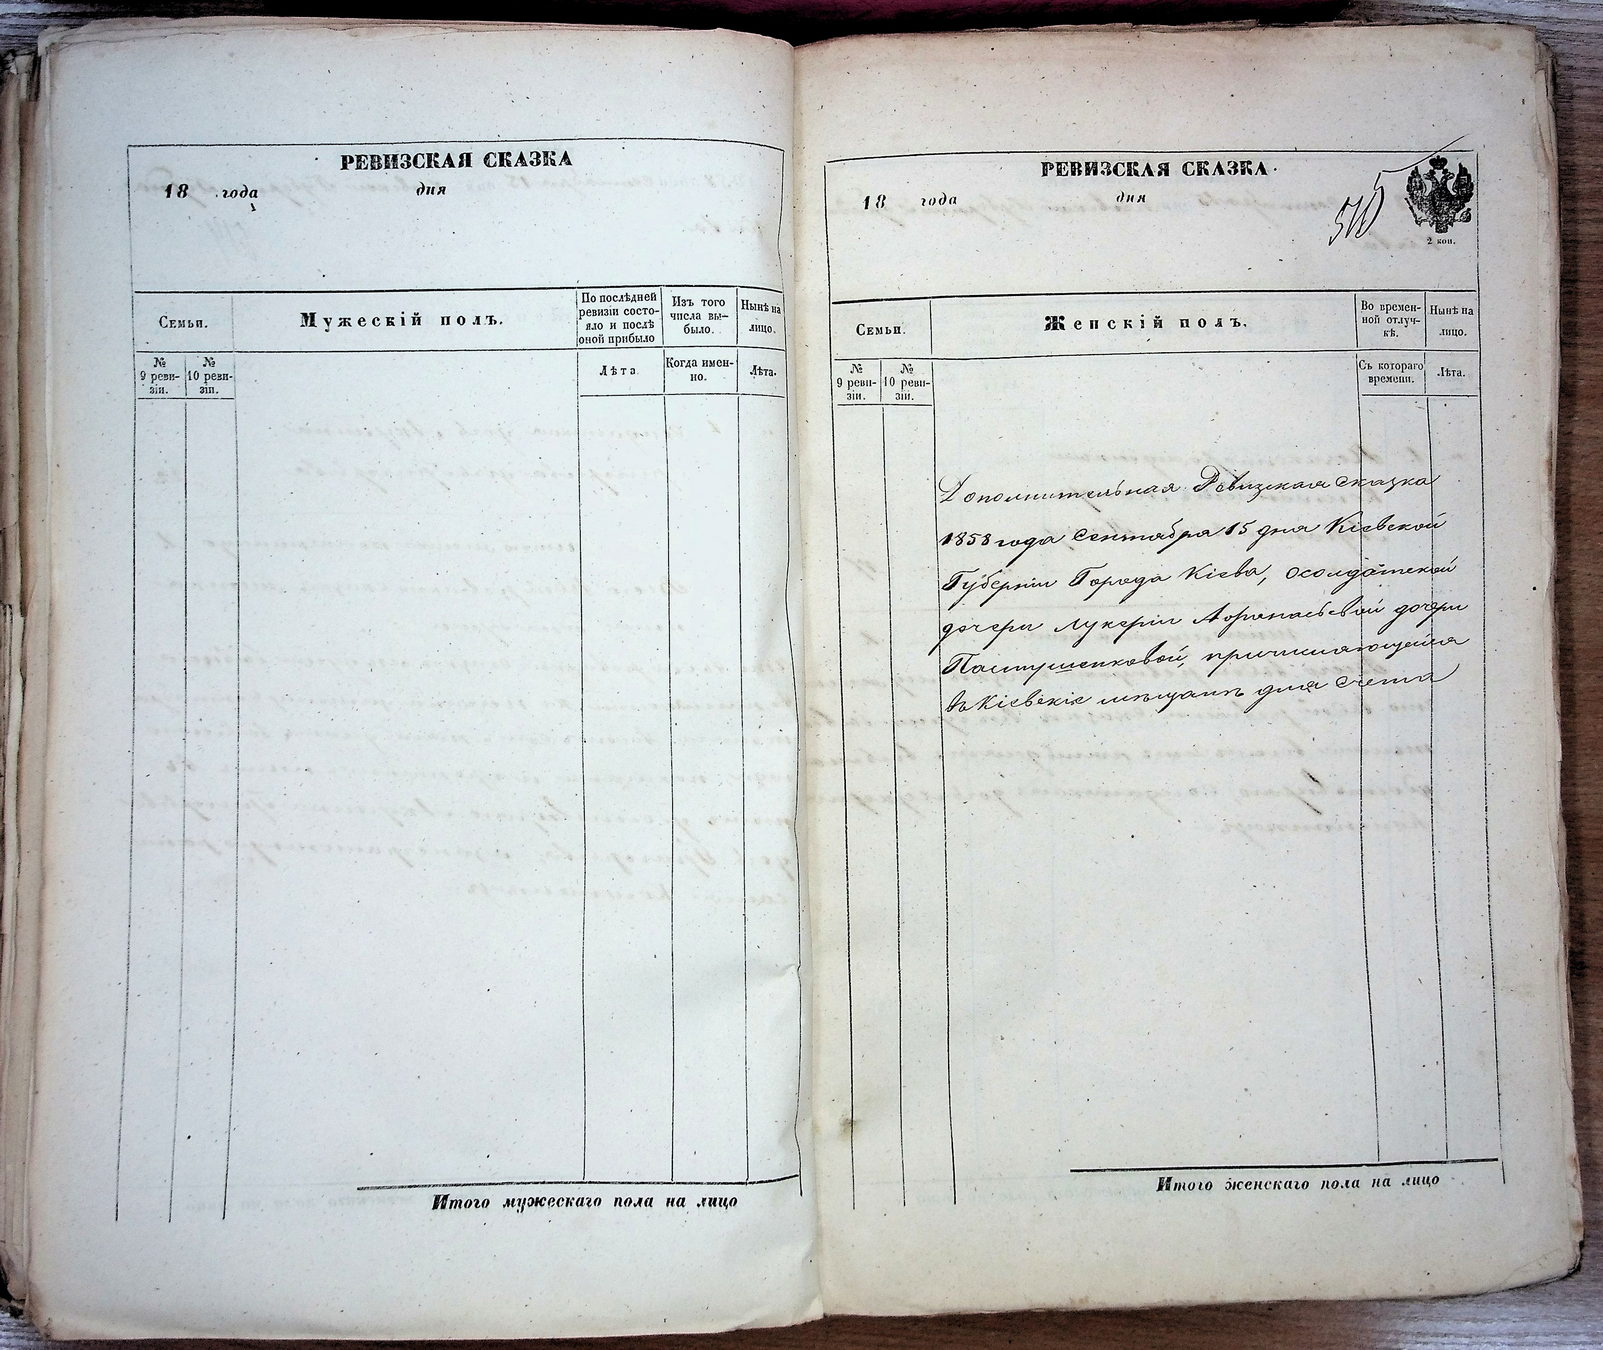 РЕВИЗСКАЯ СКАЗКА
18 года дня
Семьи.
Мужескій полъ.
По послѣдней ревизіи состояло и послѣ оной прибыло
Изъ того числа выбыло.
Нынѣ на лицо.
№ 9 ревизіи.
№ 10 ревизіи.
Лѣта
Когда именно.
Лѣта.
Итого мужескаго пола на лицо
РЕВИЗСКАЯ СКАЗКА.
18 года дня
2 коп.
Семьи.
Женскій полъ.
Во временной отлучкѣ.
Нынѣ на лицо.
№ 9 ревизіи.
№ 10 ревизіи.
Съ котораго времени.
Лѣта.
Дополнительная Ревизская сказка
1858 года Сентября 15 дня Кіевской
Губерніи Города Кіева, о солдатской
дочери Лукеріи Афонасьевой дочери
Пастушенковой, причисляющейся
въ Кіевскіе мѣщане для счета
Итого женскаго пола на лицо